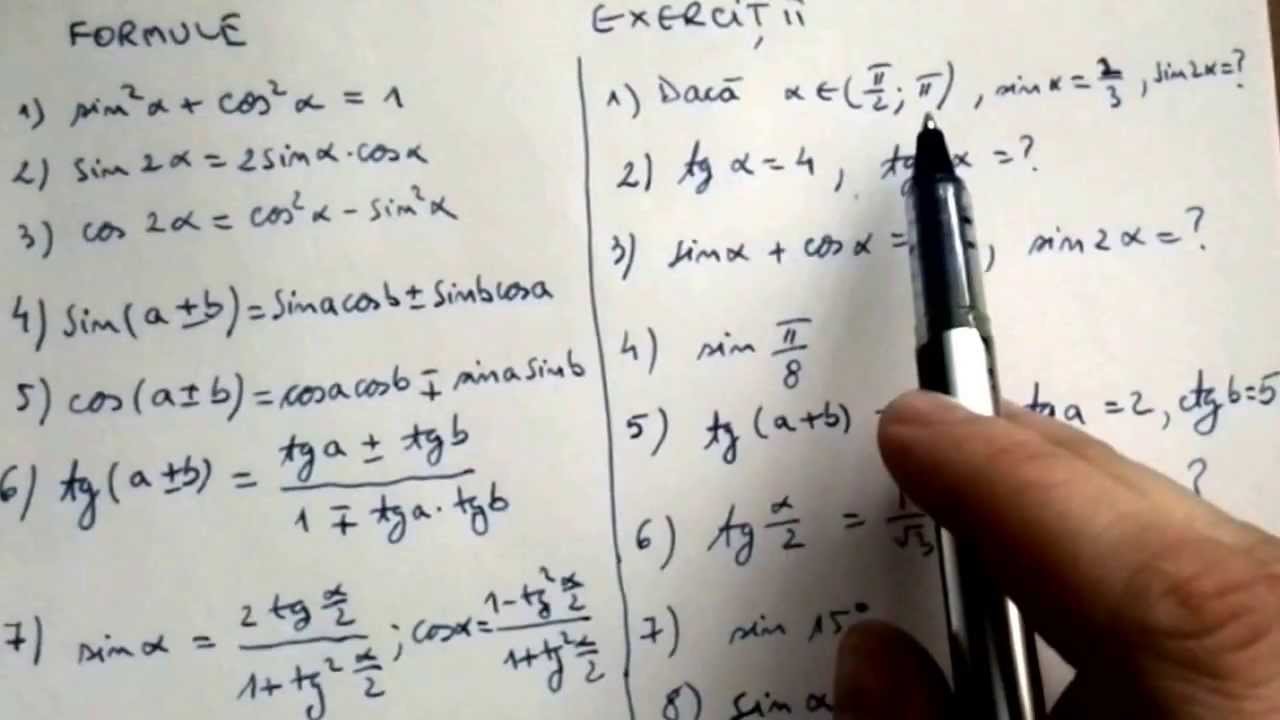 FORMULE
1) sin²α + cos²α = 1
2) sin 2α = 2sinα·cosα
3) cos 2α = cos²α - sin²α
4) sin(a±b) = sinacosb ± sinbcosa
5) cos(a±b) = cosacosb ∓ sinasinb
6) tg(a±b) = (tga ± tgb)/(1 ∓ tga·tgb)
7) sinα = (2tg α/2)/(1+tg² α/2) ; cosα = (1-tg² α/2)/(1+tg² α/2)
EXERCIȚII
1) Dacă α∈(π/2; π), sinα = 2/3, sin2α=?
2) tg α = 4, tg α = ?
3) sinα + cosα = , sin2α = ?
4) sin π/8
5) tg(a+b) tga = 2, ctgb=5
?
6) tg α/2 = 1/√3
7) sin 15°
8) sin α